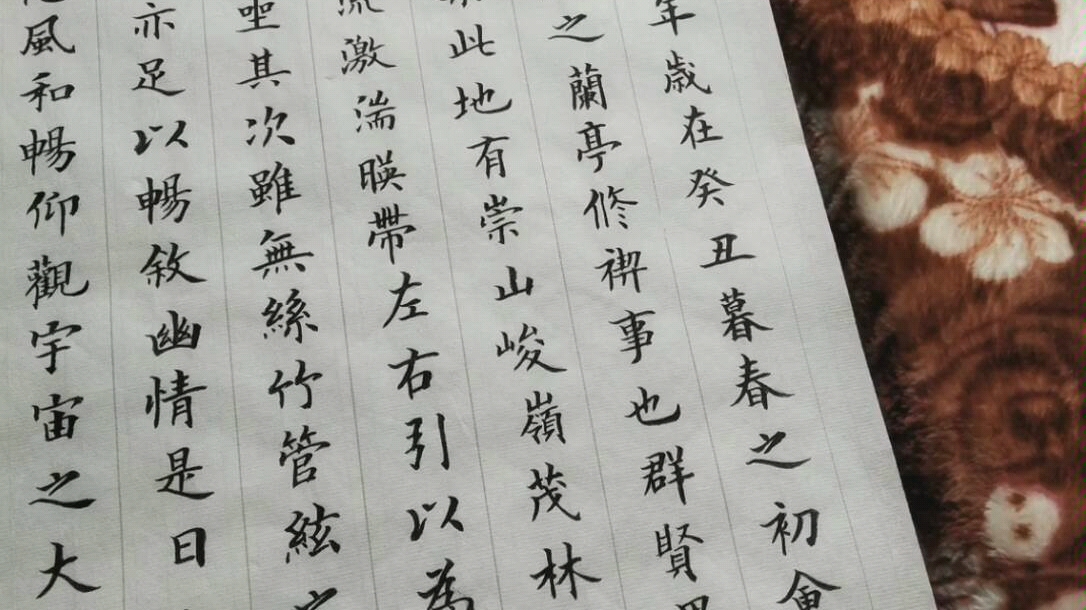 年歲在癸丑暮春之初會
之蘭亭修禊事也群賢
此地有崇山峻嶺茂林
流激湍暎帶左右引以為
坐其次雖無絲竹管絃之
亦足以暢敘幽情是日
風和暢仰觀宇宙之大